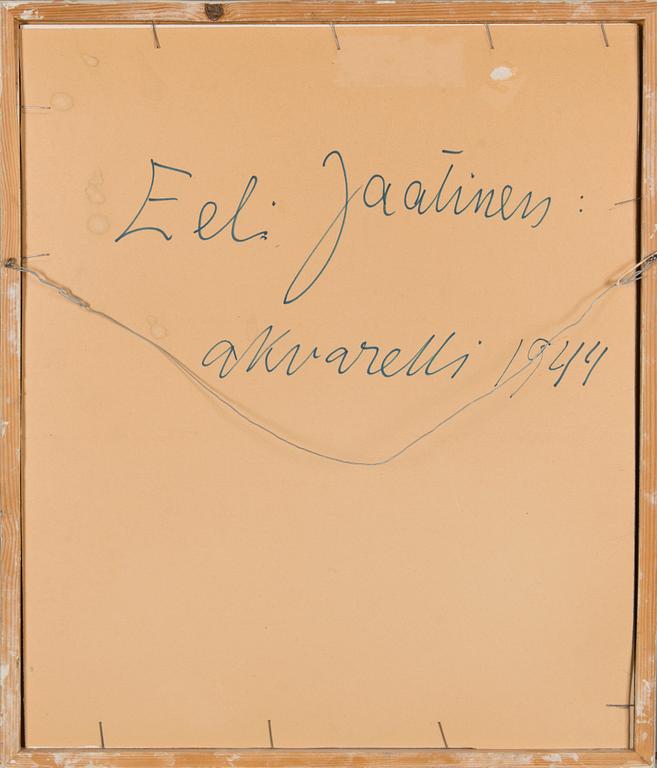 Eeli Jaatinen:
akvarelli 1944